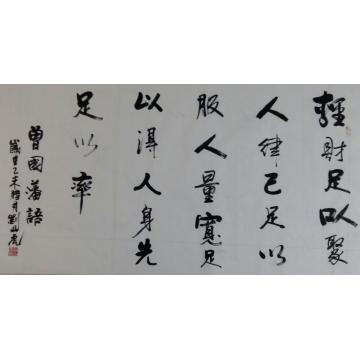 輕財足以聚
人律己足以
服人量寬足
以得人身先
足以率
曾國藩語
歲在乙未